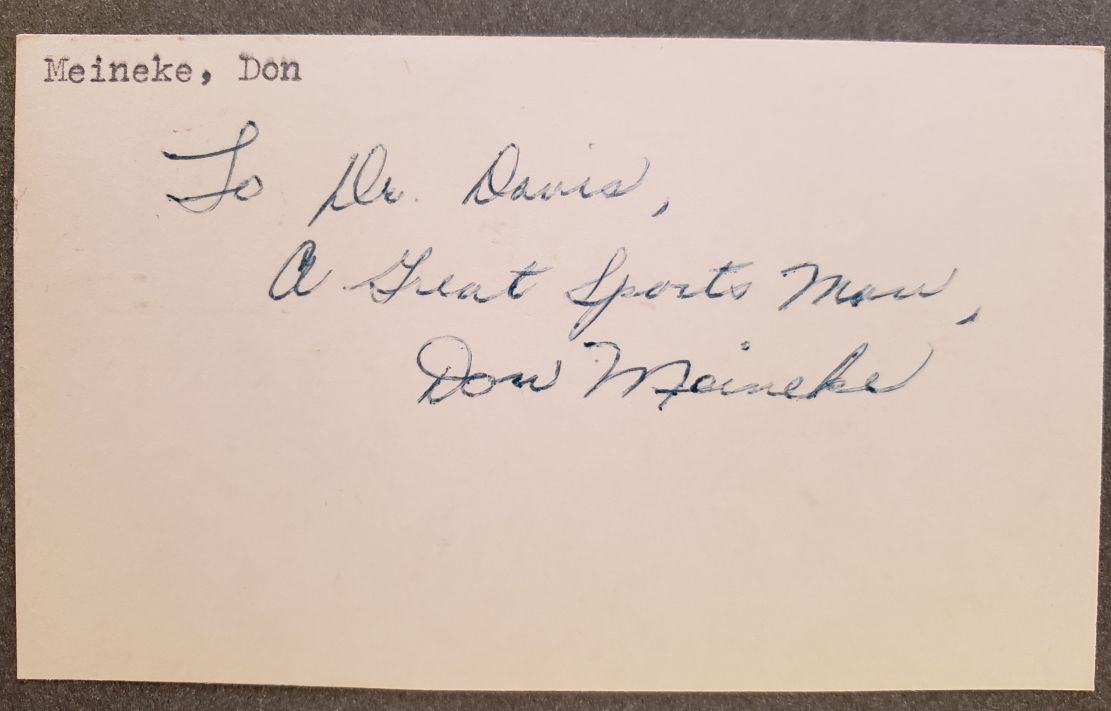 Meineke, Don
To Dr. Davis,
A Great Sports Man,
Don Meineke